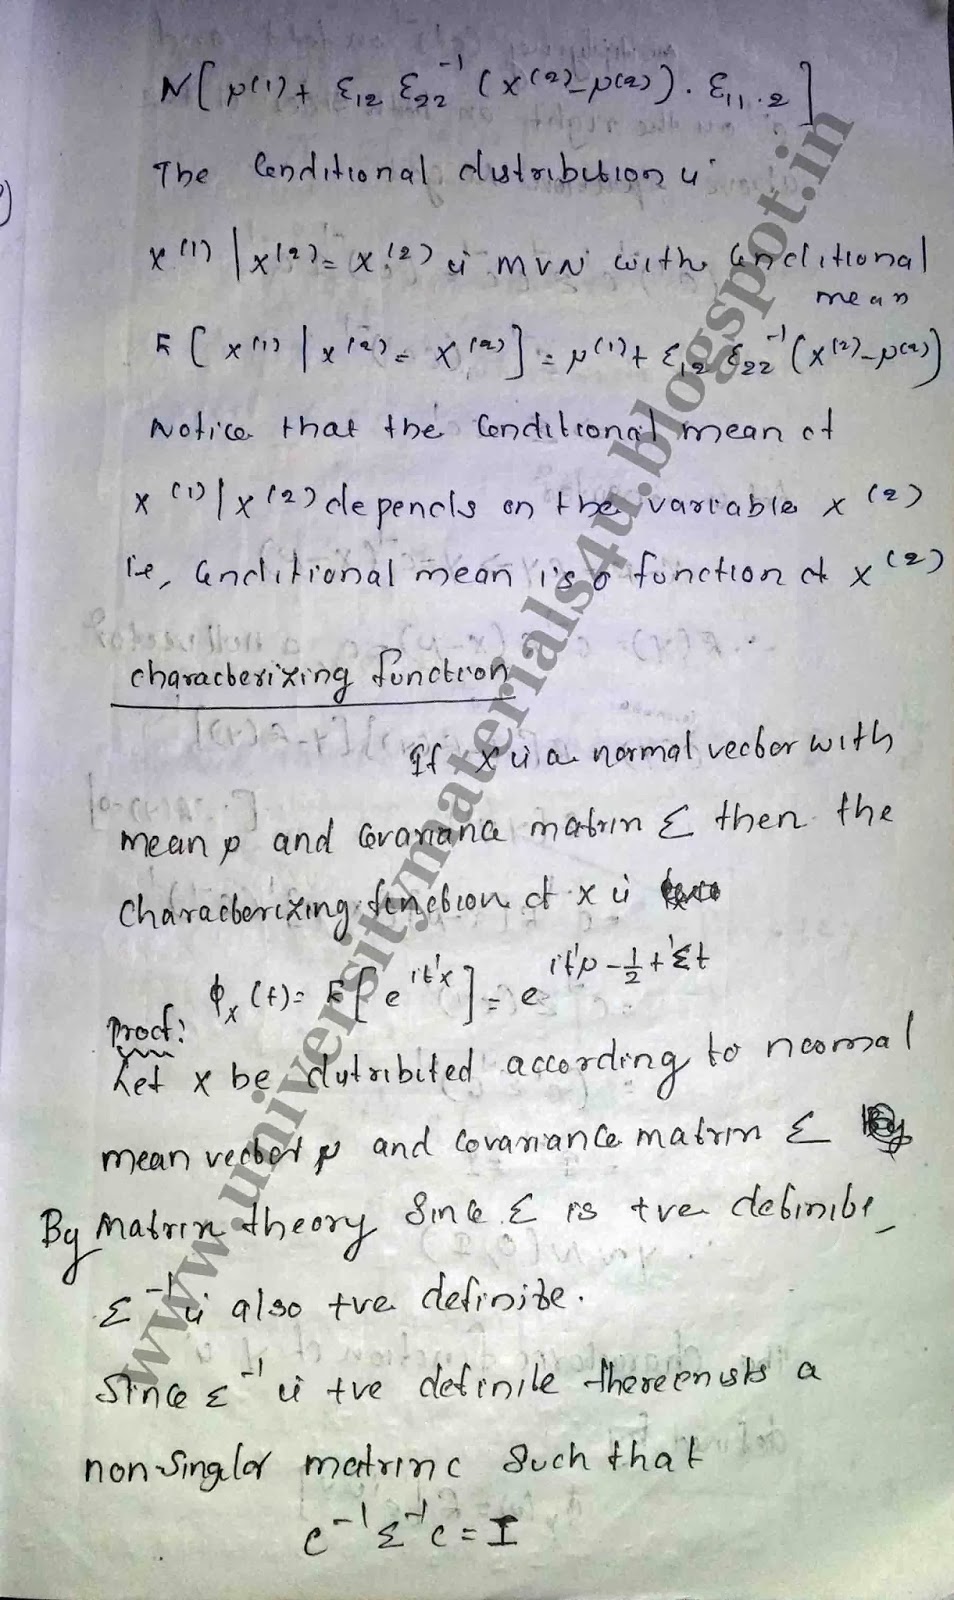 N[μ(1)+ Σ12 Σ22⁻¹ (x(2)-μ(2)). Σ11.2]
The Conditional distribution is
x(1) | x(2) = x(2) is MVN with Conditional
mean
E[x(1) | x(2) = x(2)] = μ(1)+ Σ12 Σ22⁻¹(x(2)-μ(2))
Notice that the Conditional mean of
x(1) | x(2) depends on the variable x(2)
ie, Conditional mean is a function of x(2)
Characterizing function
If x is a normal vector with
mean μ and Covariance matrix Σ then the
Characterizing function of x is
ϕx(t) = E[e^it'x] = e^it'μ - 1/2 t'Σt
Proof:
Let x be distributed according to normal
mean vector μ and covariance matrix Σ
By Matrix theory Since Σ is +ve definite,
Σ⁻¹ is also +ve definite.
Since Σ⁻¹ is +ve definite there exists a
non-singular matrix C such that
C⁻¹ Σ⁻¹ C = I
www.universitymaterials4u.blogspot.in